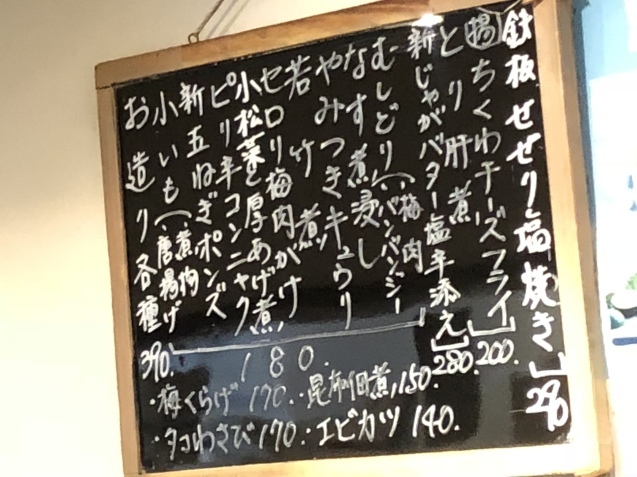 鉄板せせり塩焼き 280
揚 ちくわチーズフライ 200.
とり肝煮
新じゃがバター塩辛添え 280
むしどり(梅肉 バンバンジー
なす煮浸し
やみつきキュウリ
若竹煮
セロリ梅肉がけ
小松菜と厚あげ煮
ピリ辛コンニャク
新玉ねぎポンズ
小いも(煮物 唐揚げ
180.
お造り各種 390.
・梅くらげ 170.
・昆布佃煮, 150.
・タコわさび 170.
・エビカツ 140.